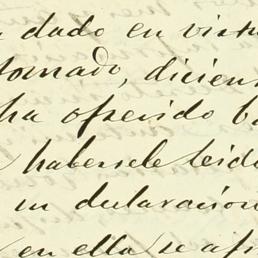 dado en virtu
tomado, dicien
ha ofrecido ba
habersele leido
un declaracion
en ella se afi